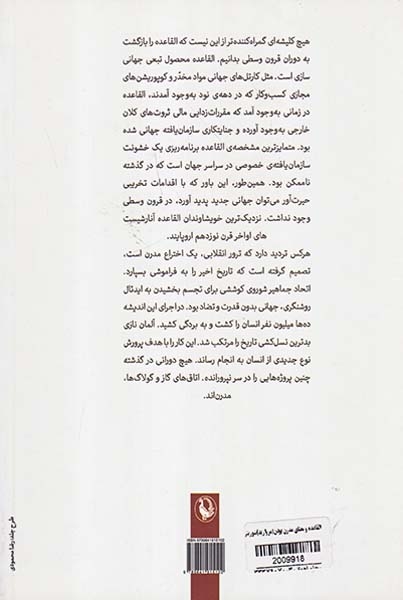 هیچ کلیشه‌ای گمراه‌کننده‌تر از این نیست که القاعده را بازگشت
به دوران قرون وسطی بدانیم. القاعده محصول تبعی جهانی
سازی است. مثل کارتل‌های جهانی مواد مخدّر و کورپوریشن‌های
مجازی کسب‌وکار که در دهه‌ی نود به‌وجود آمدند، القاعده
در زمانی به‌وجود آمد که مقررات‌زدایی مالی ثروت‌های کلان
خارجی به‌وجود آورده و جنایتکاری سازمان‌یافته جهانی شده
بود. متمایزترین مشخصه‌ی القاعده برنامه‌ریزی یک خشونت
سازمان‌یافته‌ی خصوصی در سراسر جهان است که در گذشته
ناممکن بود. همین‌طور، این باور که با اقدامات تخریبی
حیرت‌آور می‌توان جهانی جدید پدید آورد، در قرون وسطی
وجود نداشت. نزدیک‌ترین خویشاوندان القاعده آنارشیست
های اواخر قرن نوزدهم اروپایند.
هرکس تردید دارد که ترور انقلابی، یک اختراع مدرن است،
تصمیم گرفته است که تاریخ اخیر را به فراموشی بسپارد.
اتحاد جماهیر شوروی کوششی برای تجسم بخشیدن به ایدئال
روشنگری، جهانی بدون قدرت و تضاد بود. در اجرای این اندیشه
ده‌ها میلیون نفر انسان را کشت و به بردگی کشید. آلمان نازی
بدترین نسل‌کشی تاریخ را مرتکب شد. این کار را با هدف پرورش
نوع جدیدی از انسان به انجام رساند. هیچ دورانی در گذشته
چنین پروژه‌هایی را در سر نپرورانده. اتاق‌های گاز و گولاگ‌ها،
مدرن‌اند.
طرح جلد: رضا محمودی
القاعده و معنای مدرن بودن
2009918